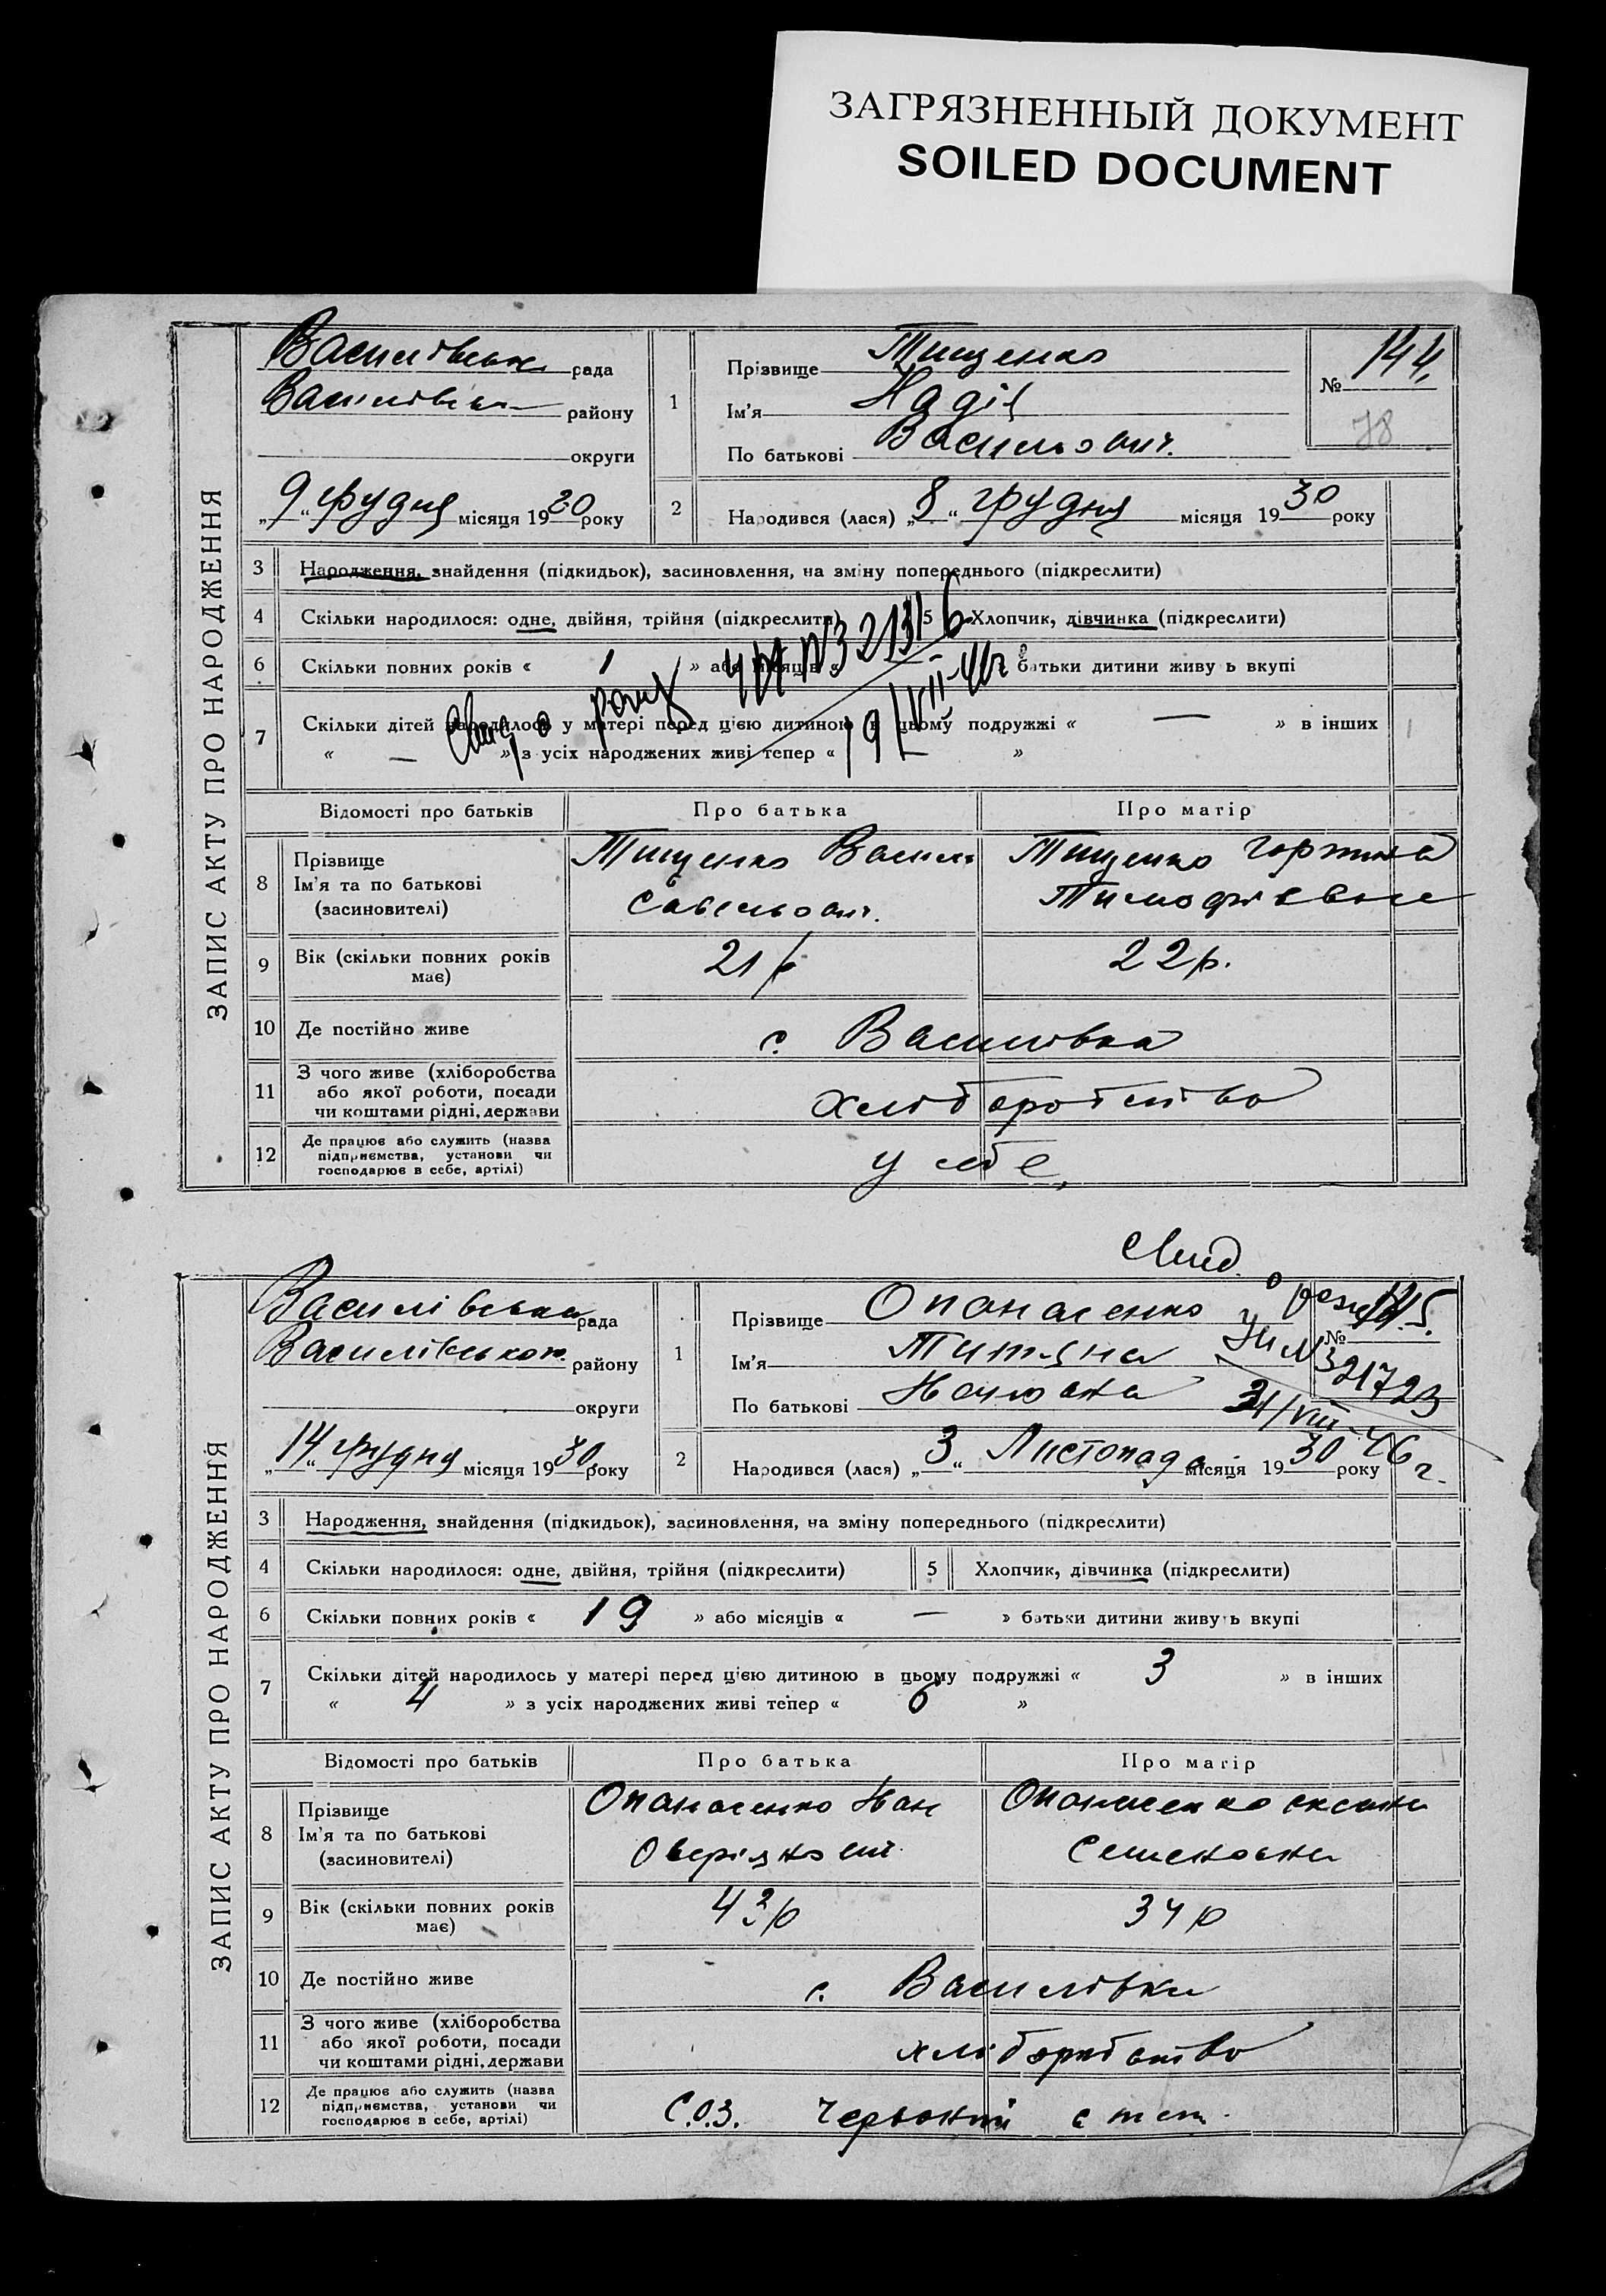 ЗАГРЯЗНЕННЫЙ ДОКУМЕНТ
SOILED DOCUMENT
ЗАПИС АКТУ ПРО НАРОДЖЕННЯ
Василівська рада
району
округи
„9“ грудня місяця 1930 року
1
Прізвище Тищенко
Ім'я Надія
По батькові
№ 144
78
2
Народився (лася) „8“ грудня місяця 1930 року
3 Народження, знайдення (підкидьок), засиновлення, на зміну попереднього (підкреслити)
4 Скільки народилося: одне, двійня, трійня (підкреслити) 5 Хлопчик, дівчинка (підкреслити)
6 Скільки повних років « 1 » або місяців « — » батьки дитини живуть вкупі
7 Скільки дітей народилось у матері перед цією дитиною в цьому подружжі « — » в інших
« — » з усіх народжених живі тепер « »
Відомості про батьків Про батька Про матір
8 Прізвище
Ім'я та по батькові
(засновителі)
Тищенко Василь
Тищенко
9 Вік (скільки повних років
має)
21 р
22 р.
10 Де постійно живе
с. Василівка
11 З чого живе (хліборобства
або якої роботи, посади
чи коштами рідні, держави
хліборобство
12 Де працює або служить (назва
підприємства, установи чи
господарює в себе, артілі)
у себе
ЗАПИС АКТУ ПРО НАРОДЖЕННЯ
Василівська рада
Василівського району
округи
„14“ грудня місяця 1930 року
1
Прізвище Опанасенко
Ім'я Титяна
По батькові
№ 145.
21723
31/VIII 46 г.
2
Народився (лася) „3“ Листопада місяця 1930 року
3 Народження, знайдення (підкидьок), засиновлення, на зміну попереднього (підкреслити)
4 Скільки народилося: одне, двійня, трійня (підкреслити) 5 Хлопчик, дівчинка (підкреслити)
6 Скільки повних років « 19 » або місяців « — » батьки дитини живуть вкупі
7 Скільки дітей народилось у матері перед цією дитиною в цьому подружжі « 3 » в інших
« 4 » з усіх народжених живі тепер « 6 »
Відомості про батьків Про батька Про матір
8 Прізвище
Ім'я та по батькові
(засиновителі)
Опанасенко Іван
Опанасенко Оксана
Семеновна
9 Вік (скільки повних років
має)
43 р
34 р
10 Де постійно живе
с. Василівка
11 З чого живе (хліборобства
або якої роботи, посади
чи коштами рідні, держави
хліборобство
12 Де працює або служить (назва
підприємства, установи чи
господарює в себе, артілі)
С.О.З. Червоний степ.